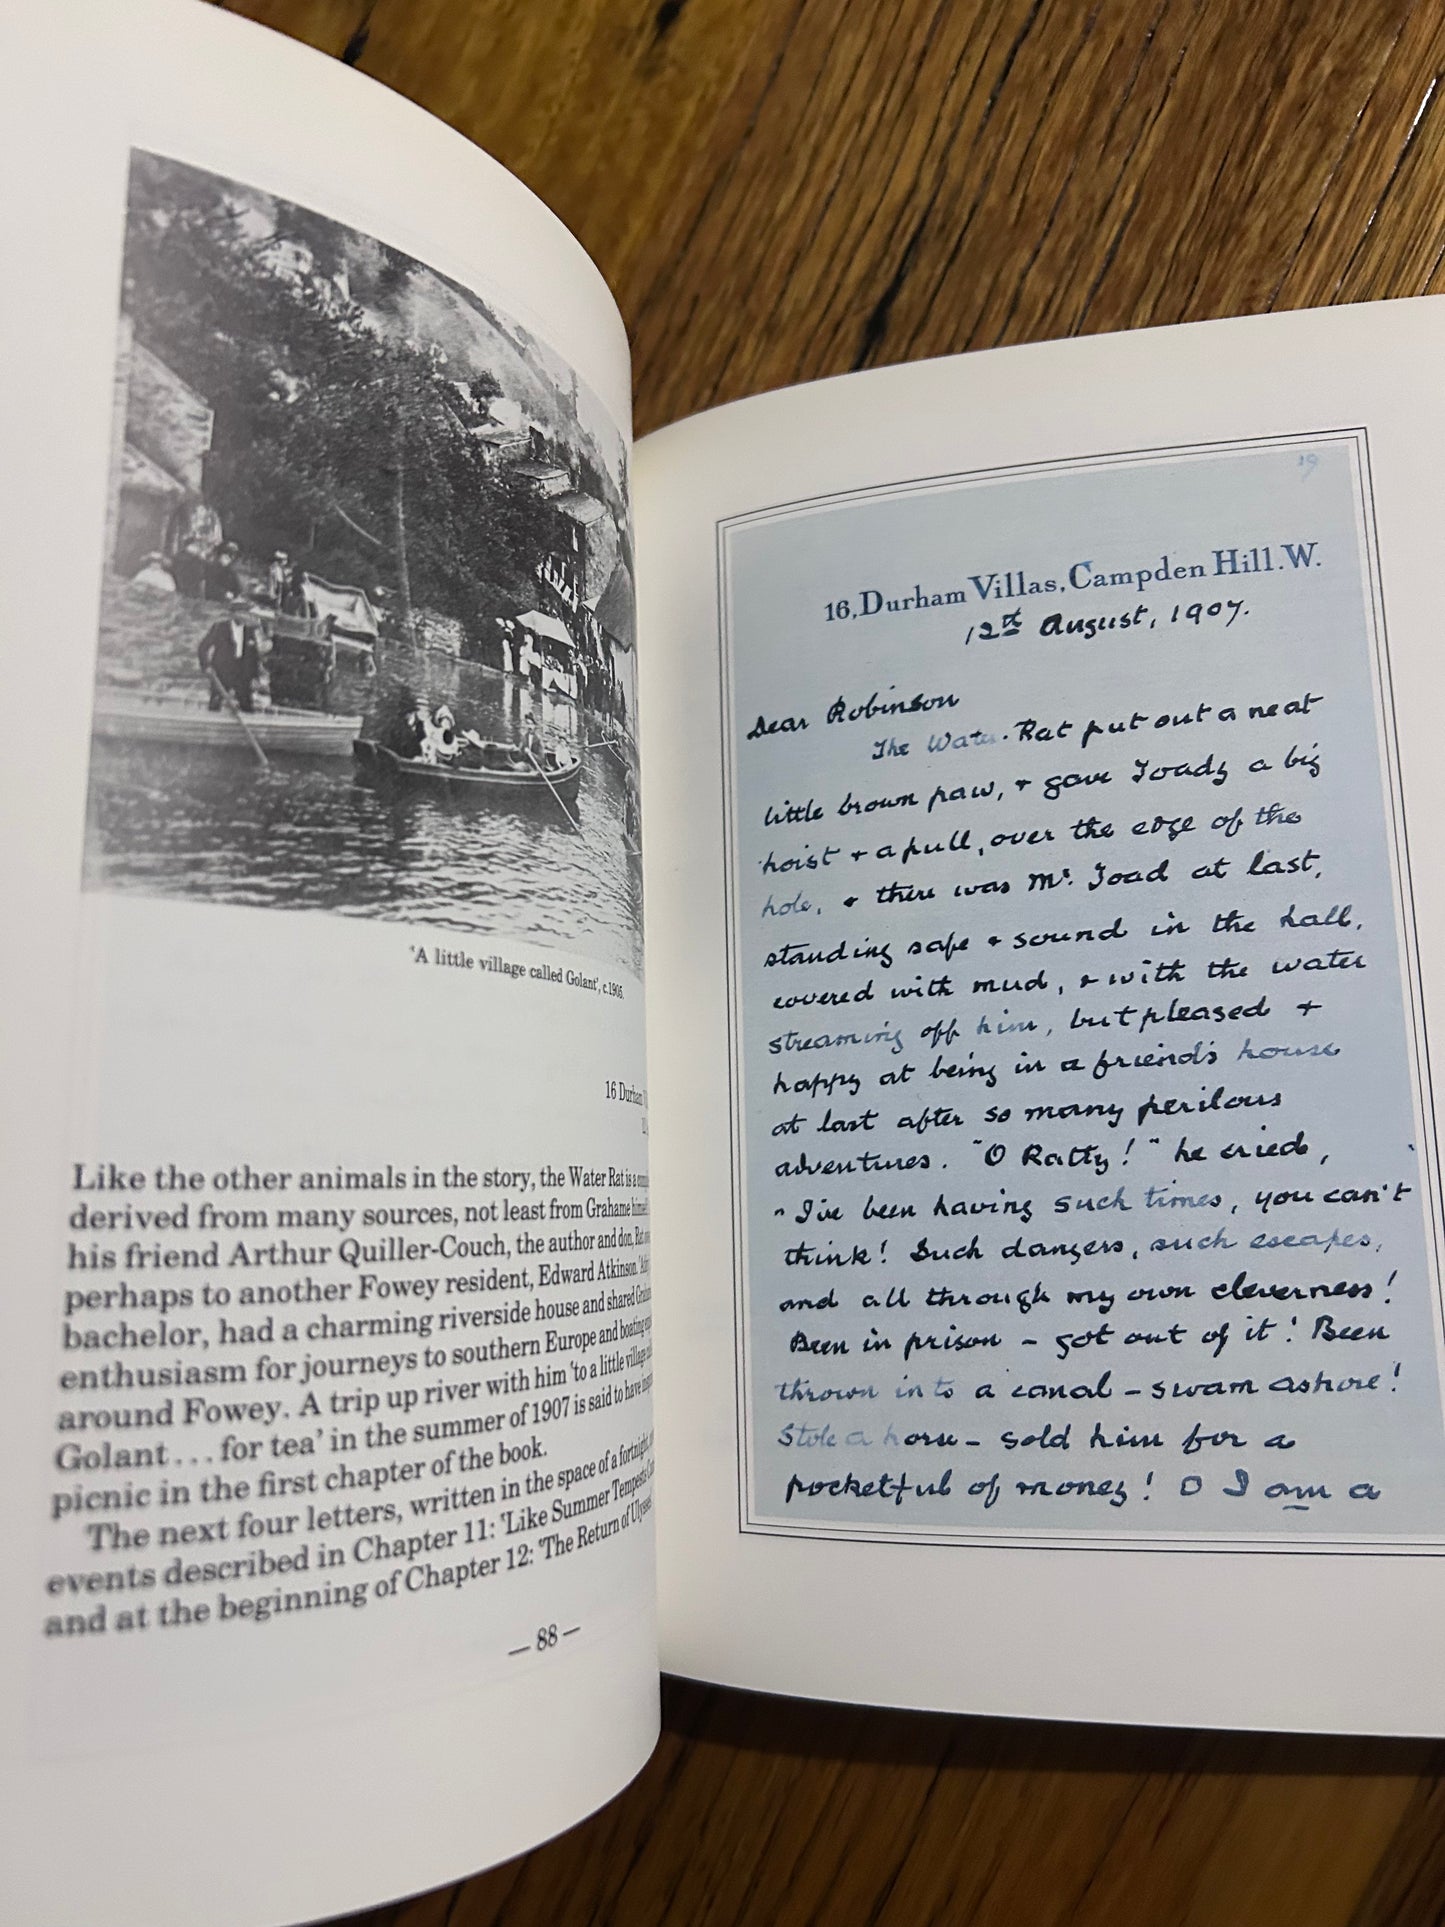 'A little village called Golant', c.1905.
16 Durham
Like the other animals in the story, the Water Rat is a
derived from many sources, not least from Grahame himself
his friend Arthur Quiller-Couch, the author and don, Rat
perhaps to another Fowey resident, Edward Atkinson.
bachelor, had a charming riverside house and shared
enthusiasm for journeys to southern Europe and boating
around Fowey. A trip up river with him 'to a little village
Golant... for tea' in the summer of 1907 is said to have
picnic in the first chapter of the book.
The next four letters, written in the space of a fortnight,
events described in Chapter 11: 'Like Summer Tempests
and at the beginning of Chapter 12: 'The Return of Ulysses'
— 88 —
19
16, Durham Villas, Campden Hill. W.
12th August, 1907.
Dear Robinson
The Water-Rat put out a neat
little brown paw, & gave Toady a big
hoist & a pull, over the edge of the
hole, & there was Mr. Toad at last,
standing safe & sound in the hall,
covered with mud, & with the water
streaming off him, but pleased &
happy at being in a friend's house
at last after so many perilous
adventures. "O Ratty!" he cried,
"I've been having such times, you can't
think! Such dangers, such escapes,
and all through my own cleverness!
Been in prison – got out of it! Been
thrown into a canal – swam ashore!
Stole a horse – sold him for a
pocketful of money! O I am a